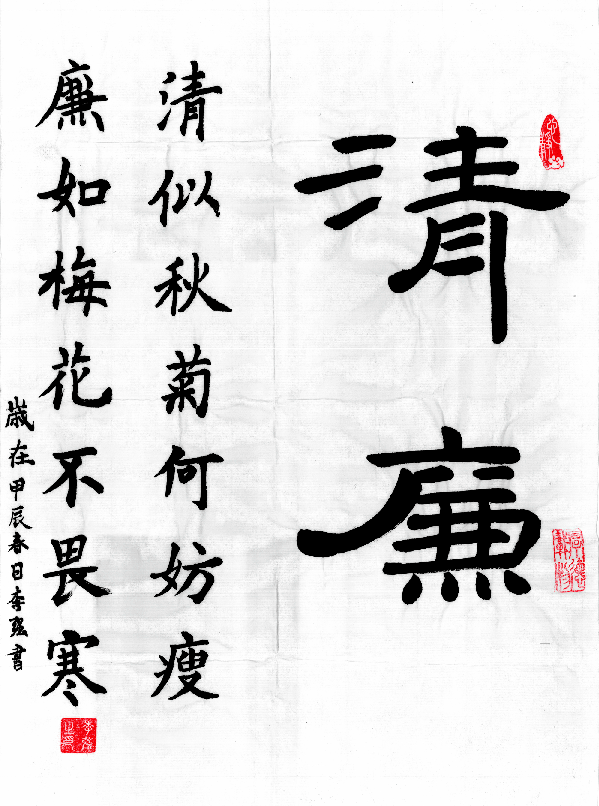 清廉
清似秋菊何妨瘦
廉如梅花不畏寒
歲在甲辰春日李强書